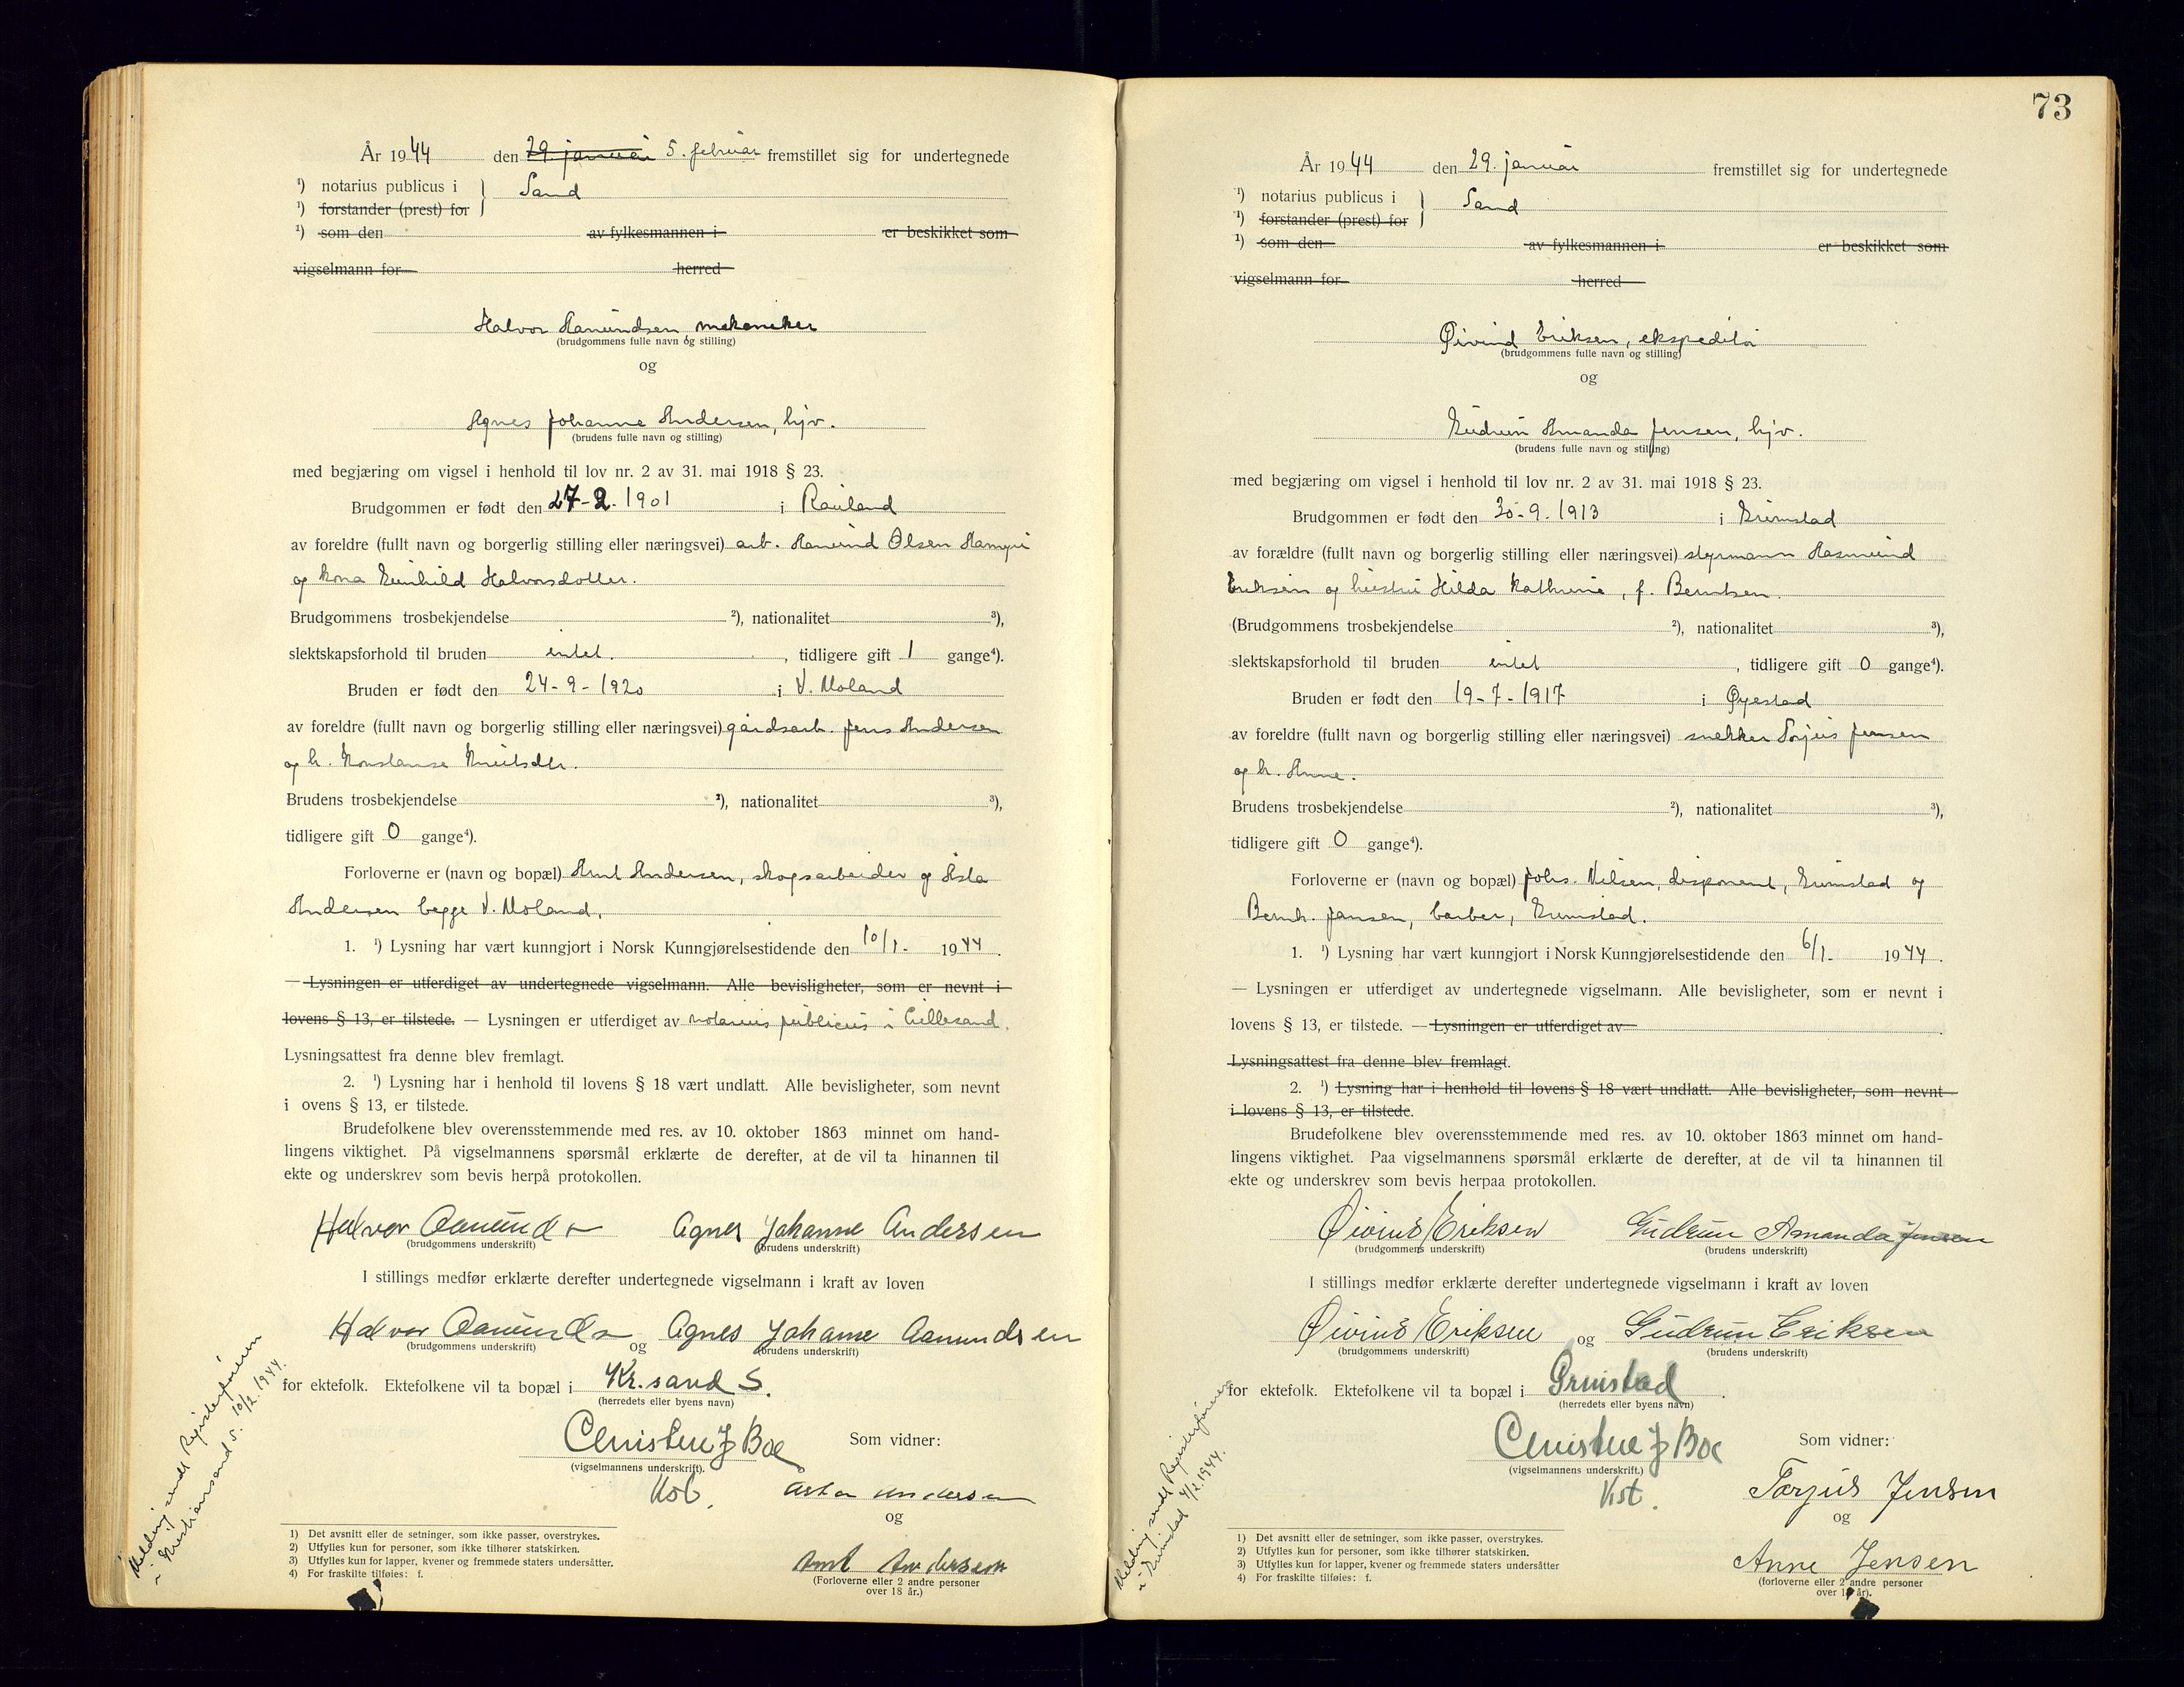 År 1944 den 29. januar 5. februar fremstillet sig for undertegnede
¹) notarius publicus i } Sand
¹) forstander (prest) for
¹) som den av fylkesmannen i er beskikket som
vigselmann for herred
Halvor Aamundsen, mekaniker
(brudgommens fulle navn og stilling)
og
Agnes Johanne Andersen, hjv.
(brudens fulle navn og stilling)
med begjæring om vigsel i henhold til lov nr. 2 av 31. mai 1918 § 23.
Brudgommen er født den 27-2-1901 i Rauland
av foreldre (fullt navn og borgerlig stilling eller næringsvei) arb. Aamund Olsen
og kona Gunhild Halvorsdotter.
Brudgommens trosbekjendelse ²), nationalitet ³),
slektskapsforhold til bruden intet. , tidligere gift 1 gange⁴).
Bruden er født den 24-9-1920 i V. Moland
av foreldre (fullt navn og borgerlig stilling eller næringsvei) gårdsarb. Jens Andersen
og h. Konstanse Knutsdtr.
Brudens trosbekjendelse ²), nationalitet ³),
tidligere gift 0 gange⁴).
Forloverne er (navn og bopæl) Arnt Andersen, skogsarbeider og Asta
Andersen begge V. Moland.
1. ¹) Lysning har vært kunngjort i Norsk Kunngjørelsestidende den 10/1- 1944.
— Lysningen er utferdiget av undertegnede vigselmann. Alle bevisligheter, som er nevnt i
lovens § 13, er tilstede. — Lysningen er utferdiget av notarius publicus i Lillesand.
Lysningsattest fra denne blev fremlagt.
2. ¹) Lysning har i henhold til lovens § 18 vært undlatt. Alle bevisligheter, som nevnt
i ovens § 13, er tilstede.
Brudefolkene blev overensstemmende med res. av 10. oktober 1863 minnet om hand-
lingens viktighet. På vigselmannens spørsmål erklærte de derefter, at de vil ta hinannen til
ekte og underskrev som bevis herpå protokollen.
Halvor Agnes Johanne Andersen
(brudgommens underskrift) (brudens underskrift)
I stillings medfør erklærte derefter undertegnede vigselmann i kraft av loven
Halvor og Agnes Johanne Aamundsen
(brudgommens underskrift) (brudens underskrift)
for ektefolk. Ektefolkene vil ta bopæl i Kr.sand S.
(herredets eller byens navn)
Christine J Boe Som vidner:
(vigselmannens underskrift).
Kst. Asta Andersen
og
Arnt Andersen
(Forloverne eller 2 andre personer
over 18 år.)
Melding sendt Registerføreren
i Kristiansand S. 10/2. 1944.
1) Det avsnitt eller de setninger, som ikke passer, overstrykes.
2) Utfylles kun for personer, som ikke tilhører statskirken.
3) Utfylles kun for lapper, kvener og fremmede staters undersåtter.
4) For fraskilte tilføies: f.
73
År 1944 den 29. januar fremstillet sig for undertegnede
¹) notarius publicus i } Sand
¹) forstander (prest) for
¹) som den av fylkesmannen i er beskikket som
vigselmann for herred
Øivind Eriksen, ekspeditør
(brudgommens fulle navn og stilling)
og
Gudrun Amanda Jensen, hjv.
(brudens fulle navn og stilling)
med begjæring om vigsel i henhold til lov nr. 2 av 31. mai 1918 § 23.
Brudgommen er født den 30-9-1913 i Grimstad
av forældre (fullt navn og borgerlig stilling eller næringsvei) styrmann Rasmund
Eriksen og hustru Hilda Kathrine, f. Berntsen.
(Brudgommens trosbekjendelse ²), nationalitet ³),
slektskapsforhold til bruden intet , tidligere gift 0 gange⁴).
Bruden er født den 19-7-1917 i Øyestad
av foreldre (fullt navn og borgerlig stilling eller næringsvei) snekker Torjus Jensen
og h. Anne.
Brudens trosbekjendelse ²), nationalitet ³),
tidligere gift 0 gange⁴).
Forloverne er (navn og bopæl) Johs. Nilsen, disponent, Grimstad og
Bernh. Jansen, barber, Grimstad.
1. ¹) Lysning har vært kunngjort i Norsk Kunngjørelsestidende den 6/1- 1944.
— Lysningen er utferdiget av undertegnede vigselmann. Alle bevisligheter, som er nevnt i
lovens § 13, er tilstede. — Lysningen er utferdiget av .
Lysningsattest fra denne blev fremlagt.
2. ¹) Lysning har i henhold til lovens § 18 vært undlatt. Alle bevisligheter, som nevnt
i lovens § 13, er tilstede.
Brudefolkene blev overensstemmende med res. av 10. oktober 1863 minnet om hand-
lingens viktighet. Paa vigselmannens spørsmål erklærte de derefter, at de vil ta hinannen til
ekte og underskrev som bevis herpaa protokollen.
Øivind Eriksen Gudrun Amanda Jensen
(brudgommens underskrift) (brudens underskrift)
I stillings medfør erklærte derefter undertegnede vigselmann i kraft av loven
Øivind Eriksen og Gudrun Eriksen
(brudgommens underskrift) (brudens underskrift)
for ektefolk. Ektefolkene vil ta bopæl i Grimstad .
(herredets eller byens navn)
Christine J Boe Som vidner:
(vigselmannens underskrift.)
Kst. Torjus Jensen
og
Anne Jensen
(forloverne eller 2 andre personer
over 18 år).
Melding sendt Registerføreren
i Grimstad 4/2. 1944.
1) Det avsnitt eller de setninger, som ikke passer, overstrykes.
2) Utfylles kun for personer, som ikke tilhører statskirken.
3) Utfylles kun for lapper, kvener og fremmede staters undersåtter
4) For fraskilte tilføies: f.